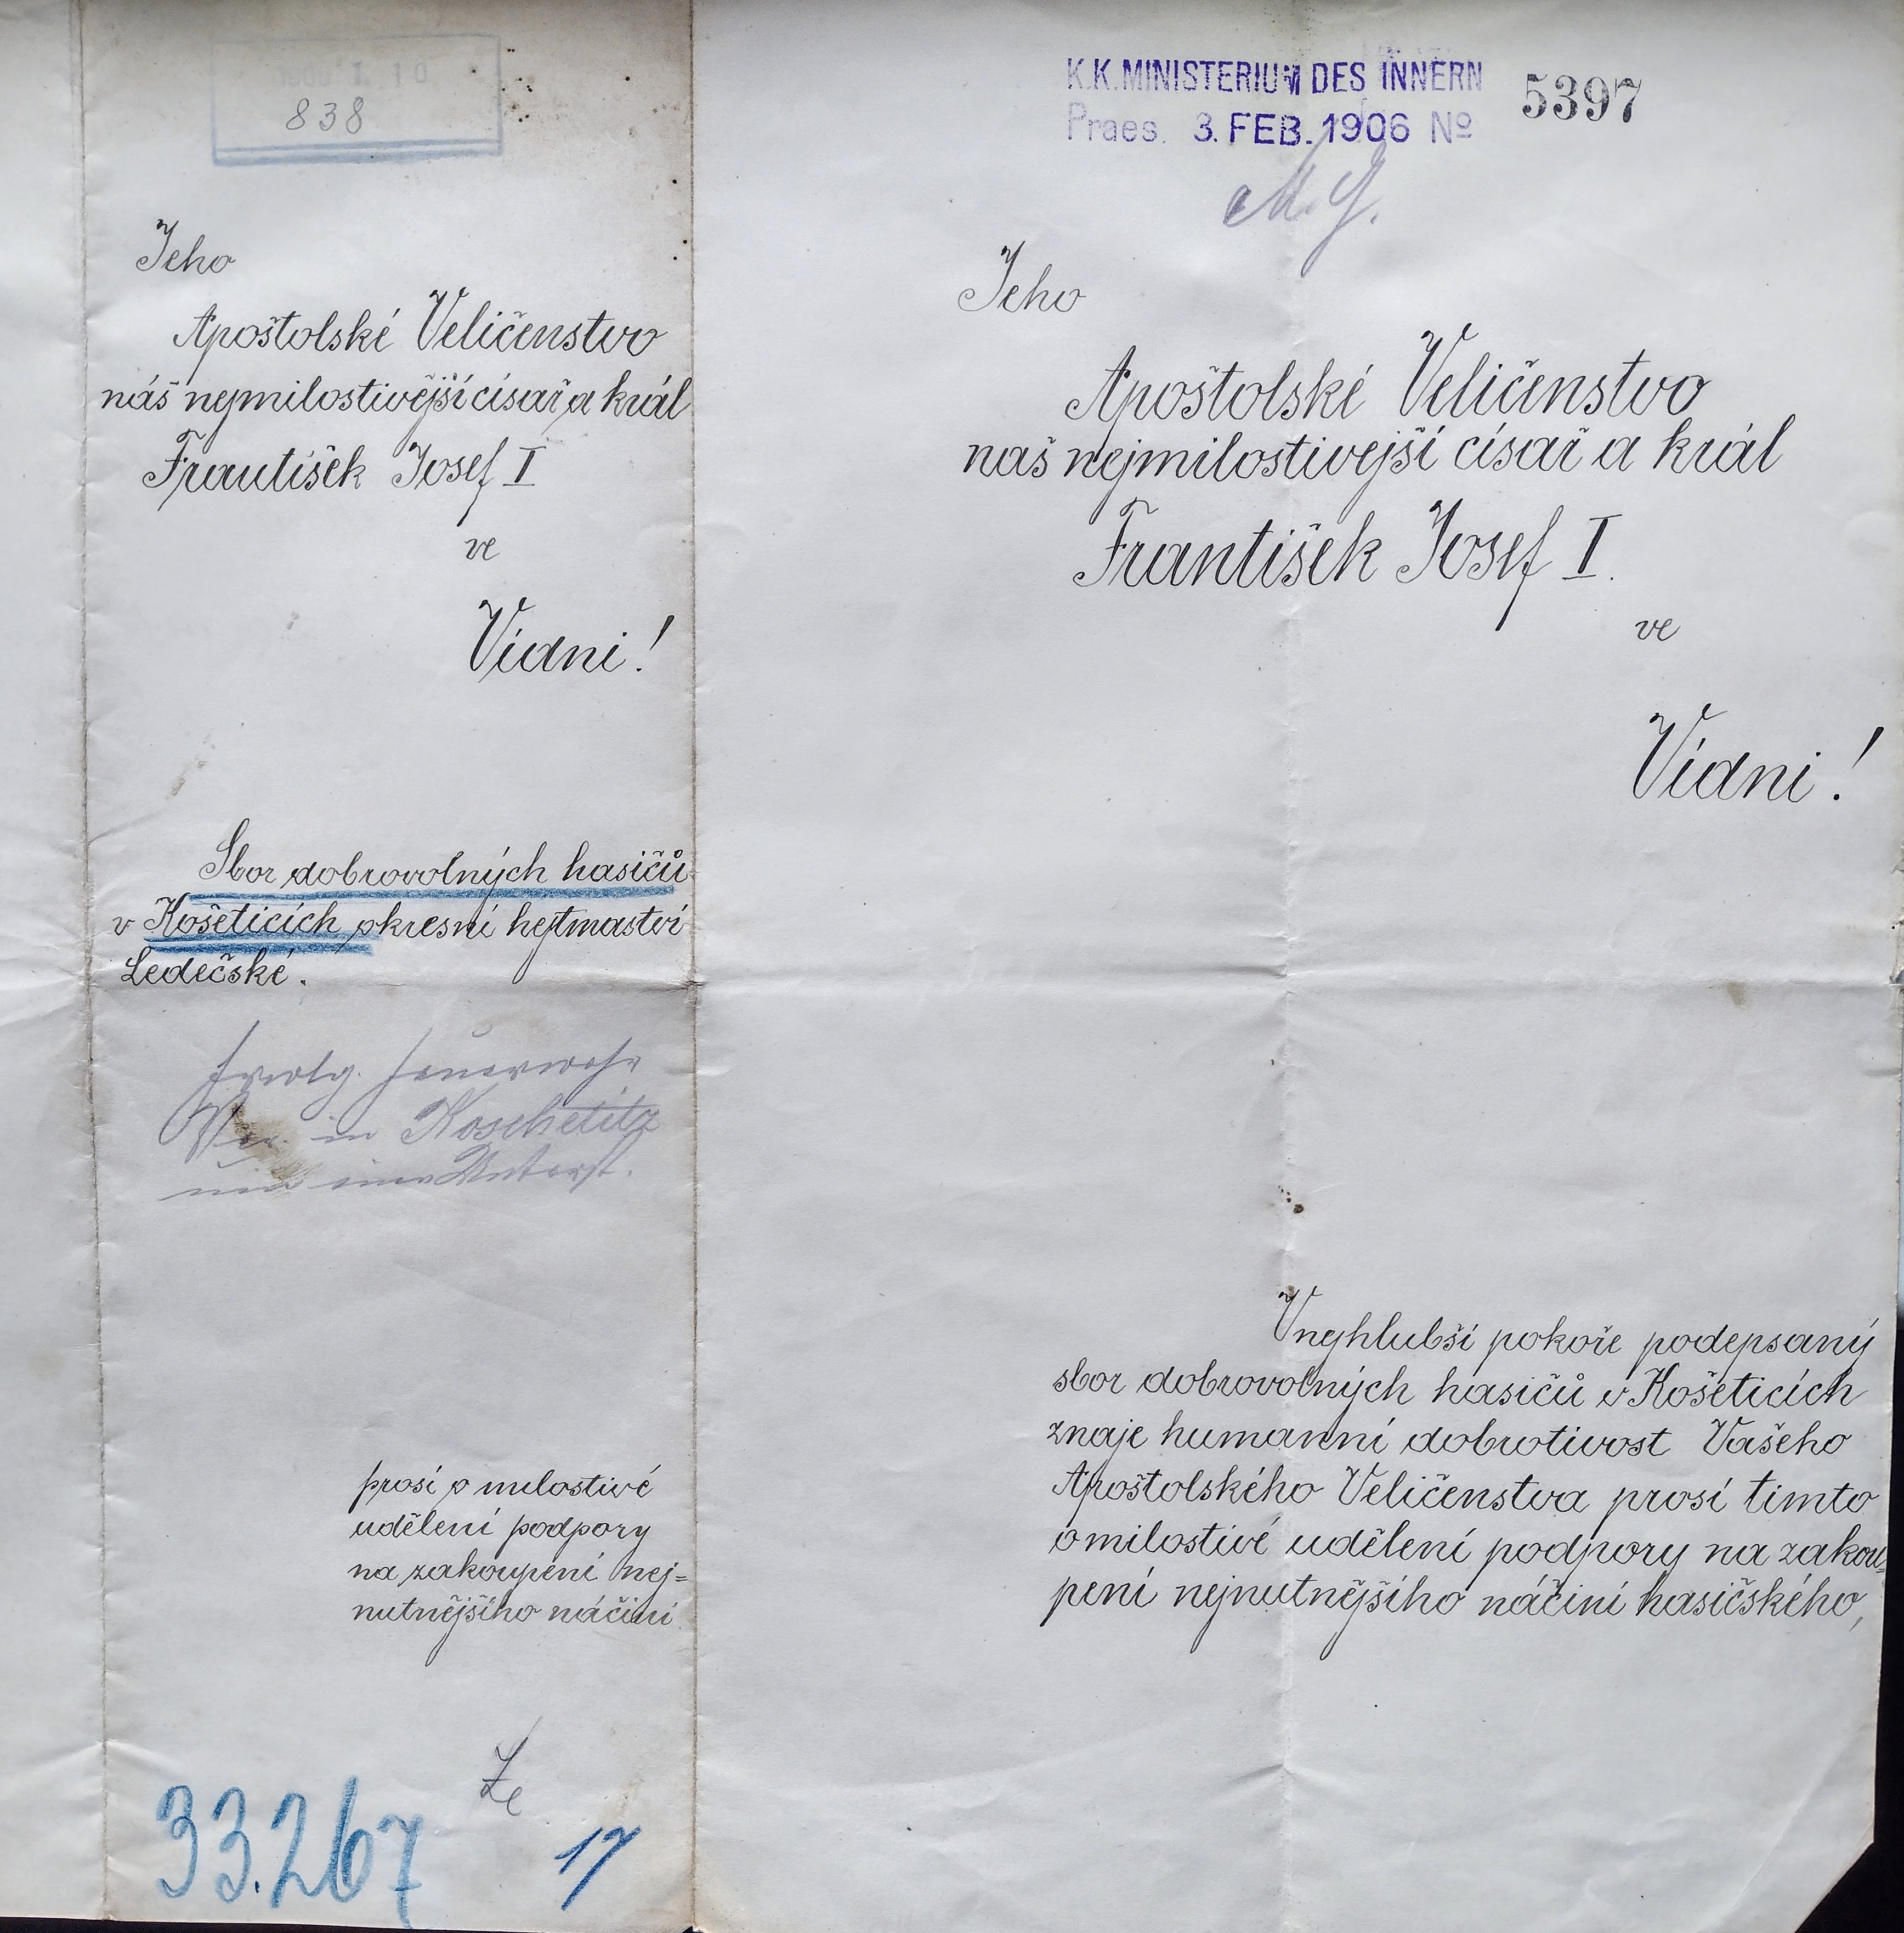 1906 I. 10
838
Jeho
Apoštolské Veličenstvo
náš nejmilostivější císař a král
František Josef I
ve
Vídni!
Sbor dobrovolných hasičů
v Košeticích okresní hejtmaství
Ledečské.
Freiwlg. Feuerwehr
in Koschetitz
um eine Unterst.
prosí o milostivé
udělení podpory
na zakoupení nej=
nutnějšího náčiní
33.267
17
K.K. MINISTERIUM DES INNERN
Praes. 3. FEB. 1906 № 5397
M. J.
Jeho
Apoštolské Veličenstvo
naš nejmilostivejší císař a král
František Josef I.
ve
Vídni!
V nejhlubší pokoře podepsaný
sbor dobrovolných hasičů v Košeticích
znaje humanní dobrotivost Vašeho
Apoštolského Veličenstva prosí timto
o milostivé udělení podpory na zakou=
pení nejnutnějšího náčiní hasičského,